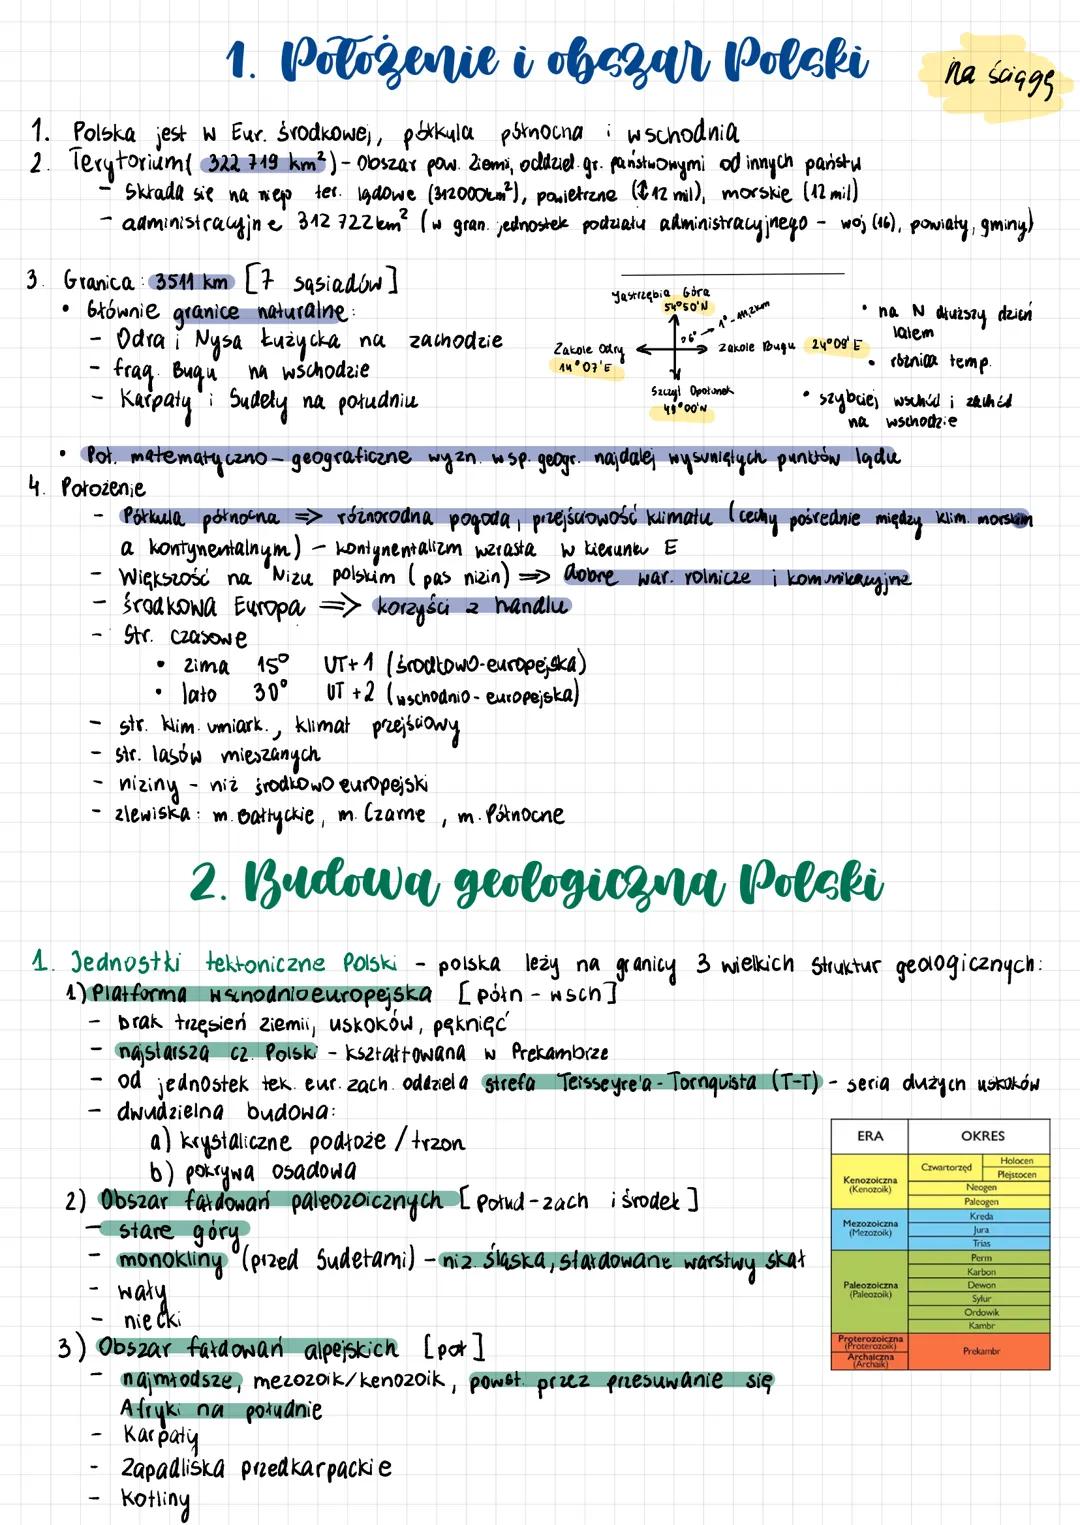 1. Położenie i obszar Polski
na ściągę
1. Polska jest w Eur. środkowej, półkula północna i wschodnia
2. Terytorium( 322 719 km²) - Obszar pow. Ziemi, oddziel. gr. państwowymi od innych państw
- Składa się na niego ter. lądowe (312000km²), powietrzne (↕12 mil), morskie (12 mil)
- administracyjne 312 722km² (w gran. jednostek podziału administracyjnego - woj (16), powiaty, gminy)
3. Granica: 3511 km [7 sąsiadów]
• Głównie granice naturalne:
- Odra i Nysa Łużycka na zachodzie
- frag. Bugu na wschodzie
- Karpaty i Sudety na południu
Jastrzębia Góra
54°50'N
1° - 111,2km
6°
Zakole Odry
14°07'E
zakole Bugu 24°09'E
Szczyt Opołonek
49°00'N
• na N dłuższy dzień
latem
• różnica temp.
• szybciej wschód i zachód
na wschodzie
• Poł. matematyczno - geograficzne wyzn. wsp. geogr. najdalej wysuniętych punktów lądu
4. Położenie
- Półkula północna => różnorodna pogoda, przejściowość klimatu (cechy pośrednie między klim. morskim
a kontynentalnym) - kontynentalizm wzrasta w kierunku E
- Większość na Nizu polskim (pas nizin) => dobre war. rolnicze i komunikacyjne
- środkowa Europa => korzyści z handlu
- Str. czasowe
• zima 15° UT+1 (środkowo-europejska)
• lato 30° UT+2 (wschodnio-europejska)
- str. klim. umiark., klimat przejściowy
- str. lasów mieszanych
- niziny - niż środkowo europejski
- zlewiska: m. Bałtyckie, m. Czarne, m. Północne
2. Budowa geologiczna Polski
1. Jednostki tektoniczne Polski - polska leży na granicy 3 wielkich struktur geologicznych:
1) Platforma wschodnioeuropejska [półn - wsch]
- brak trzęsień ziemii, uskoków, pęknięć
- najstarsza cz. Polski - kształtowana w Prekambrze
- od jednostek tek. eur. zach. oddziela strefa Teisseyre'a - Tornquista (T-T) - seria dużych uskoków
- dwudzielna budowa:
a) krystaliczne podłoże / trzon
b) pokrywa osadowa
2) Obszar fałdowań paleozoicznych [połud-zach i środek]
- stare góry
- monokliny (przed Sudetami) - niz. śląska, sfałdowane warstwy skał
- wały
- niecki
3) Obszar fałdowań alpejskich [poł]
- najmłodsze, mezozoik/kenozoik, powst. przez przesuwanie się
Afryki na południe
- Karpaty
- Zapadliska przedkarpackie
- Kotliny
ERA OKRES
Kenozoiczna
(Kenozoik)
Czwartorzęd
Holocen
Plejstocen
Neogen
Paleogen
Mezozoiczna
(Mezozoik)
Kreda
Jura
Trias
Paleozoiczna
(Paleozoik)
Perm
Karbon
Dewon
Sylur
Ordowik
Kambr
Proterozoiczna
(Proterozoik)
Archaiczna
(Archaik)
Prekambr